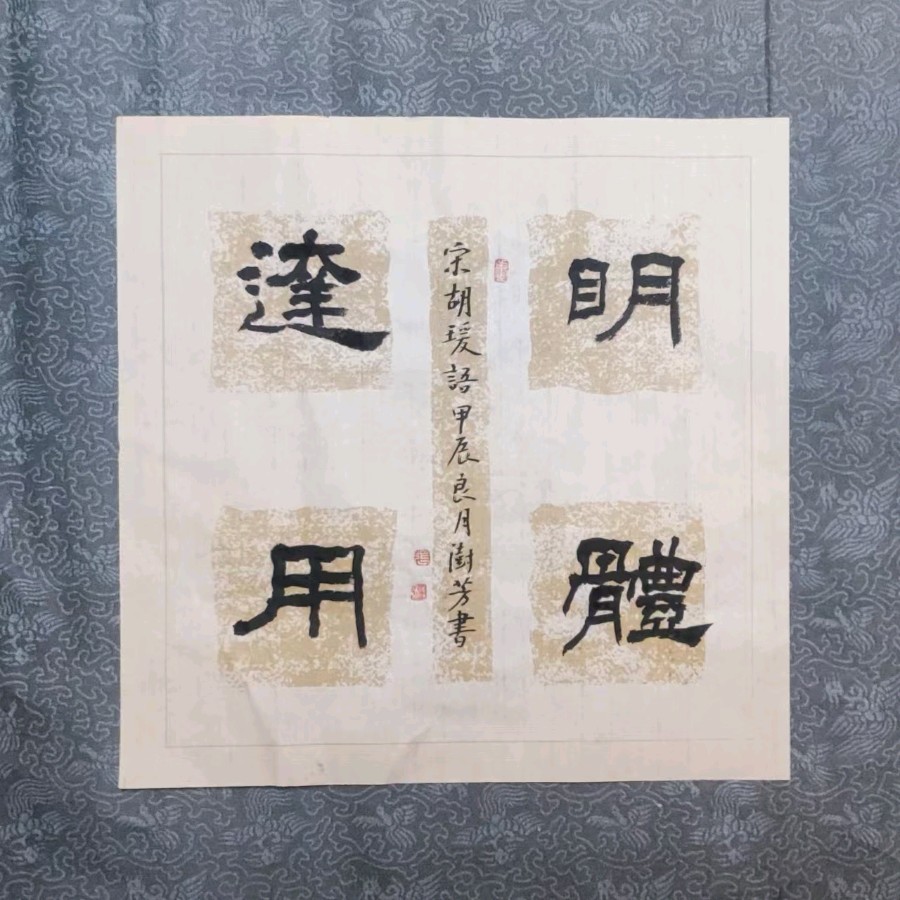 明體
達用
宋胡瑗語甲辰良月澍芳書